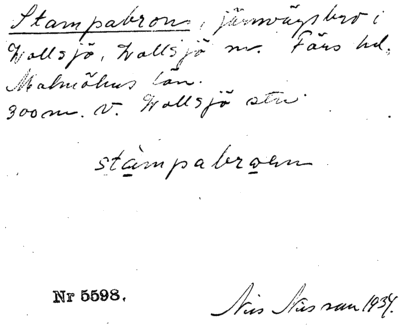 Stampabron, järnvägsbro i
Vollsjö, Vollsjö sn. Färs hd.
Malmöhus län.
300 m. V. Vollsjö stn
stampabroen
Nr 5598.
Nils Nilsson 1934.